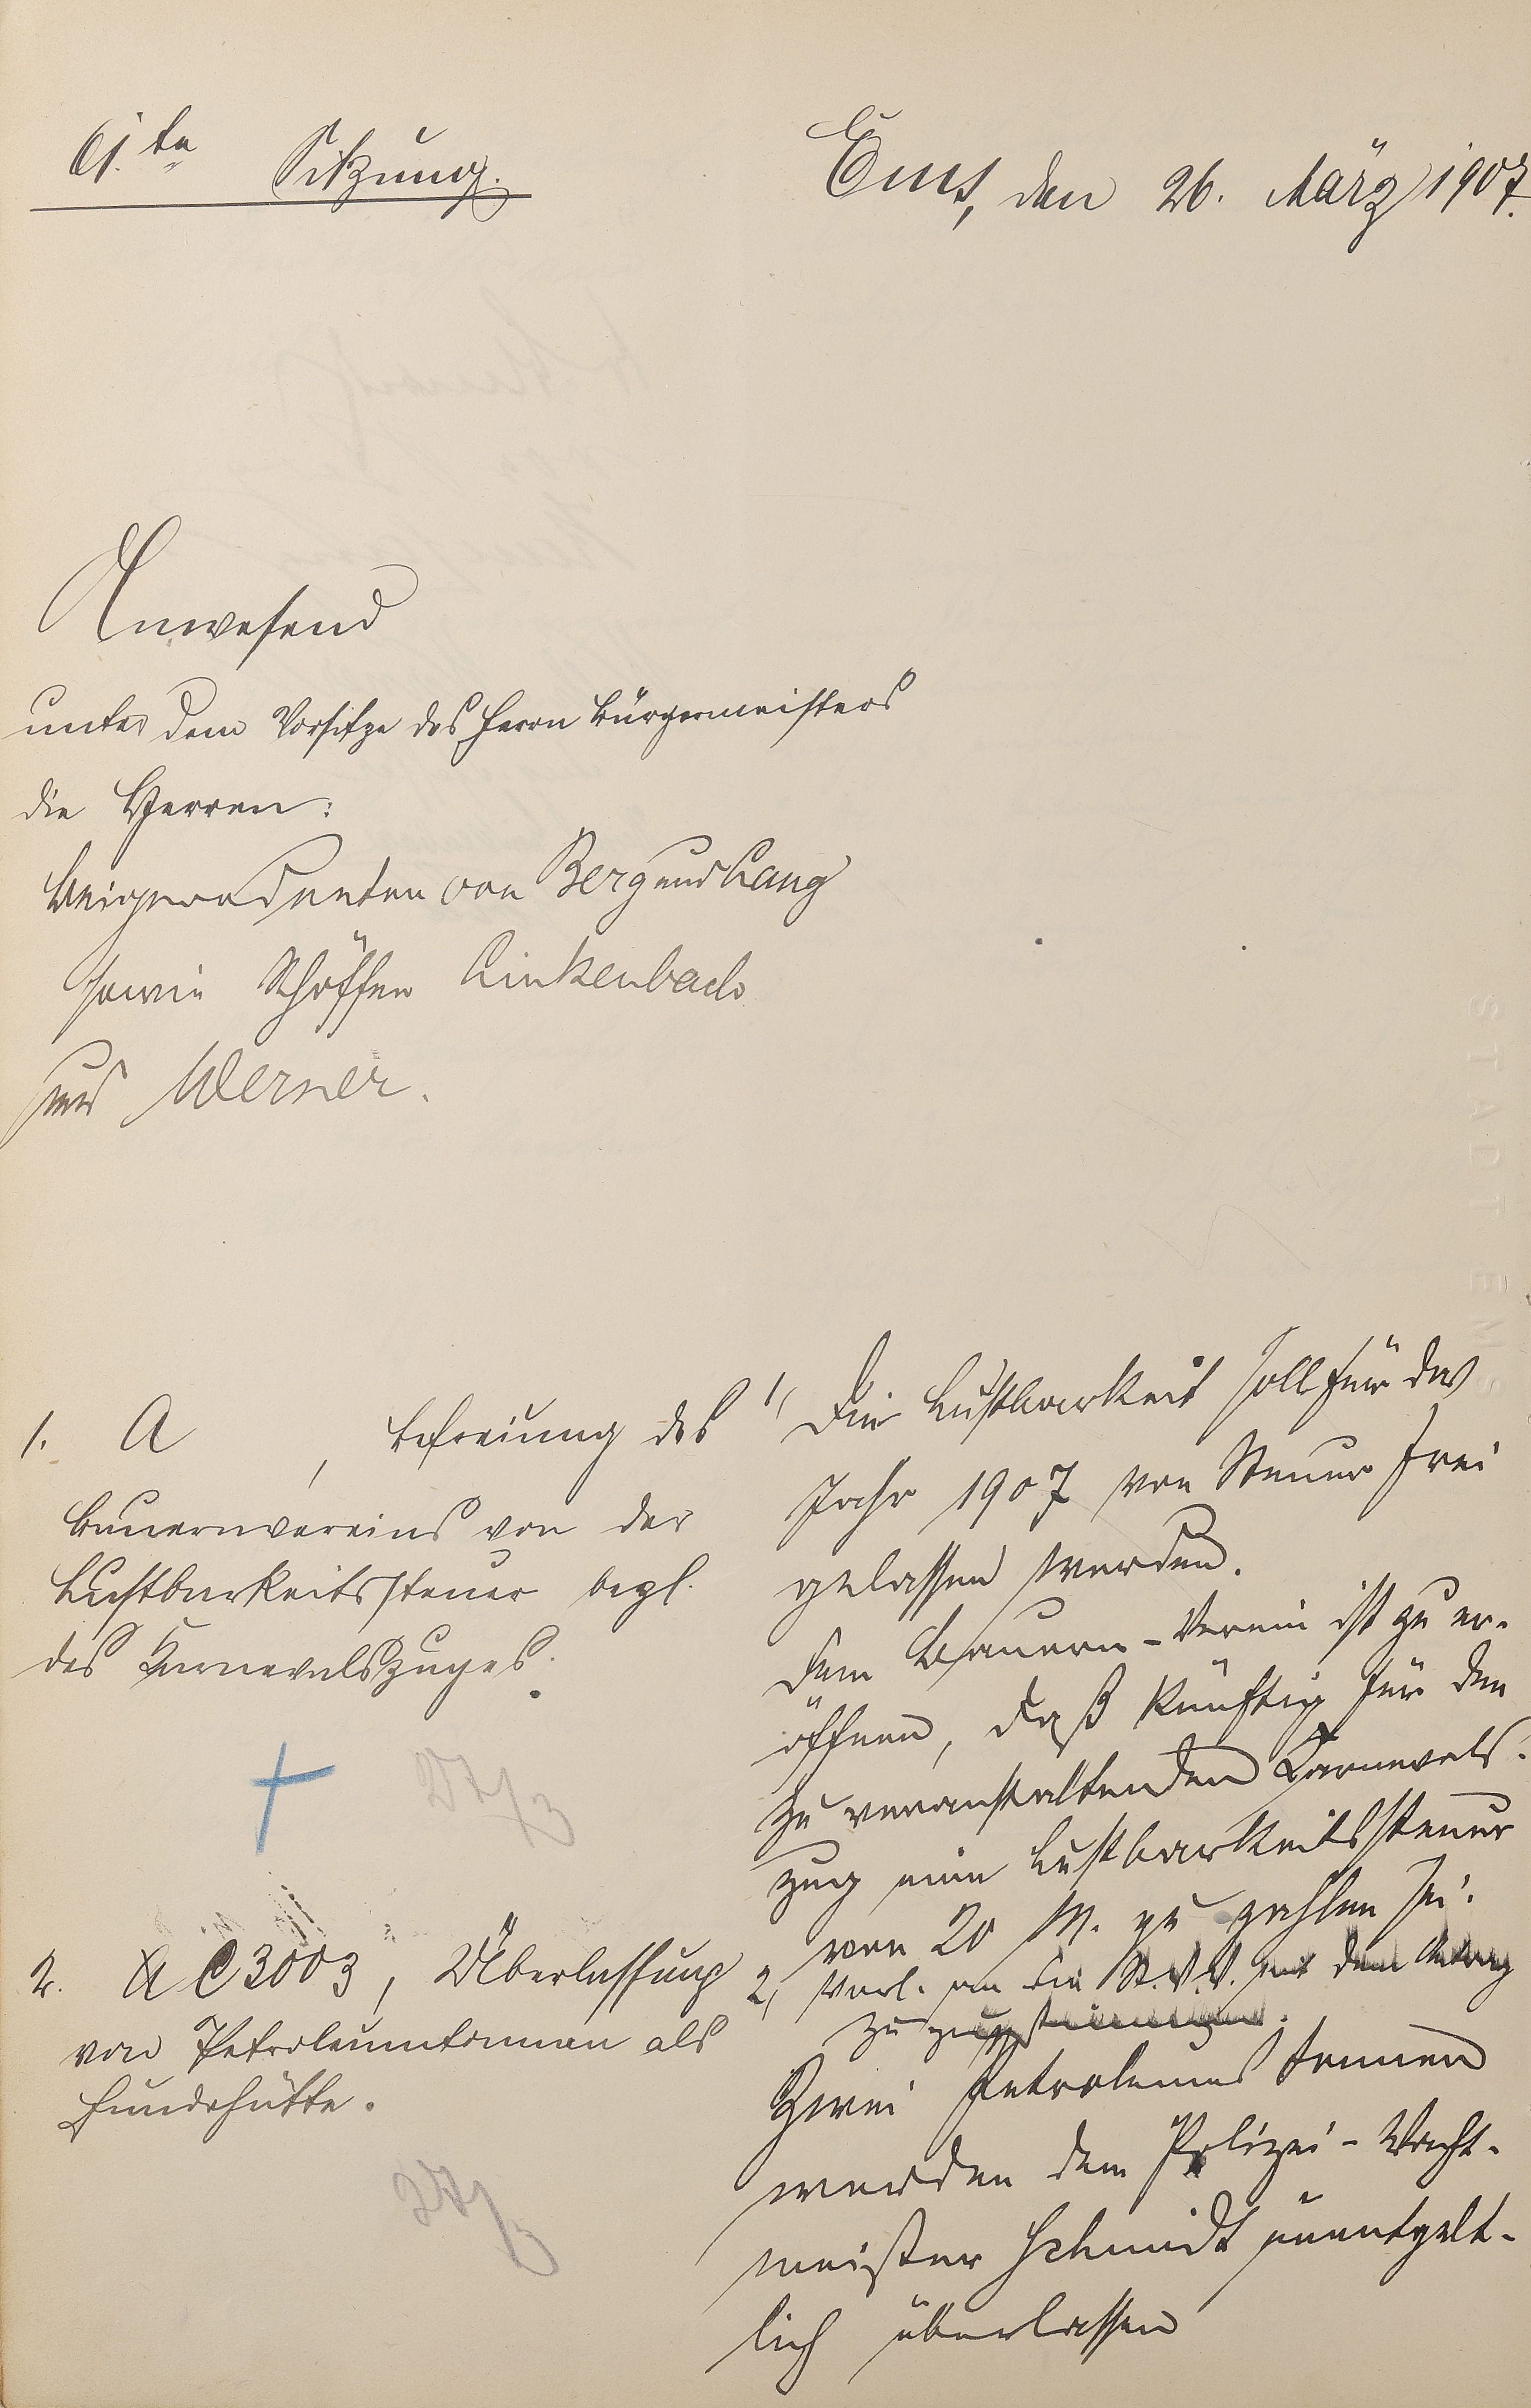 61.te Sitzung.
Ems, den 26. März 1907.
Anwesend
unter dem Vorsitze des Herrn Bürgermeisters
die Herren:
Beigeordneten von Berg und Lang
sowie Schöffen Linkenbach
und Werner.
1. A , Befreiung des
Bauernvereins von der
Lustbarkeitssteuer bezl.
des Karnevalszuges.
1, Die Lustbarkeit soll für das
Jahr 1907 von Steuer frei
gelassen werden.
Dem Bauern-Verein ist zu er-
öffnen, daß künftig für den
zu veranstaltenden Karnevals-
zug eine Lustbarkeitssteuer
von 20 M. zu zahlen sei.
2. A C 3003, Überlassung
von Petroleumtonnen als
Hundehütte.
2, Vorl. an die St.V.V. mit dem Antrag
zu zuzustimmen.
Zwei Petroleums tonnen
werden dem Polizei-Wacht-
meister Schmidt unentgelt-
lich überlassen
STADT EMS